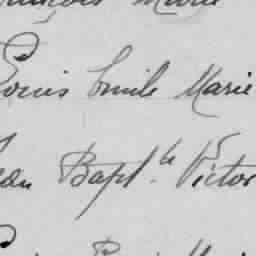 François Marie
Louis Emile Marie
Jean Bapt.te Victor